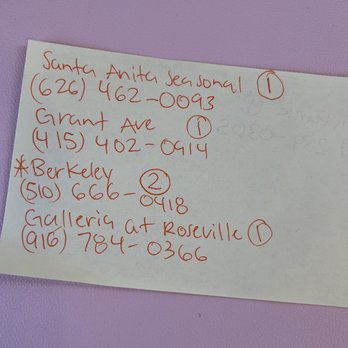 Santa Anita Seasonal ①
(626) 462-0093
Grant Ave ①
(415) 402-0914
*Berkeley ②
(510) 666-0418
Galleria at Roseville ①
(916) 784-0366